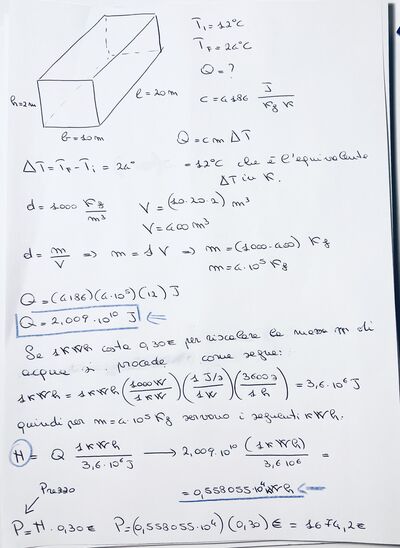 Ti = 12°C
TF = 24°C
Q = ?
h=2m
l=20m
c = 4186 J/Kg K
b=10m
Q = c m ΔT
ΔT = TF - Ti = 24° = 12°C che è l'equivalente
ΔT in K.
d = 1000 Kg/m³ V = (10·20·2) m³
V = 400 m³
d = m/V => m = d V => m = (1000·400) Kg
m = 4·10⁵ Kg
Q = (4186)(4·10⁵)(12) J
Q = 2,009·10¹⁰ J
Se 1KWh costa 0,30€ per riscaldare la massa m di
acqua si procede come segue:
1KWh = 1KWh (1000W/1KW)(1 J/s/1W)(3600s/1h) = 3,6·10⁶ J
quindi per m = 4·10⁵ Kg servono i seguenti KWh.
H = Q 1KWh/3,6·10⁶J → 2,009·10¹⁰ (1KWh)/3,6·10⁶ =
= 0,558055·10⁴ KWh
Prezzo
P = H · 0,30€ P = (0,558055·10⁴)(0,30)€ = 1674,2€